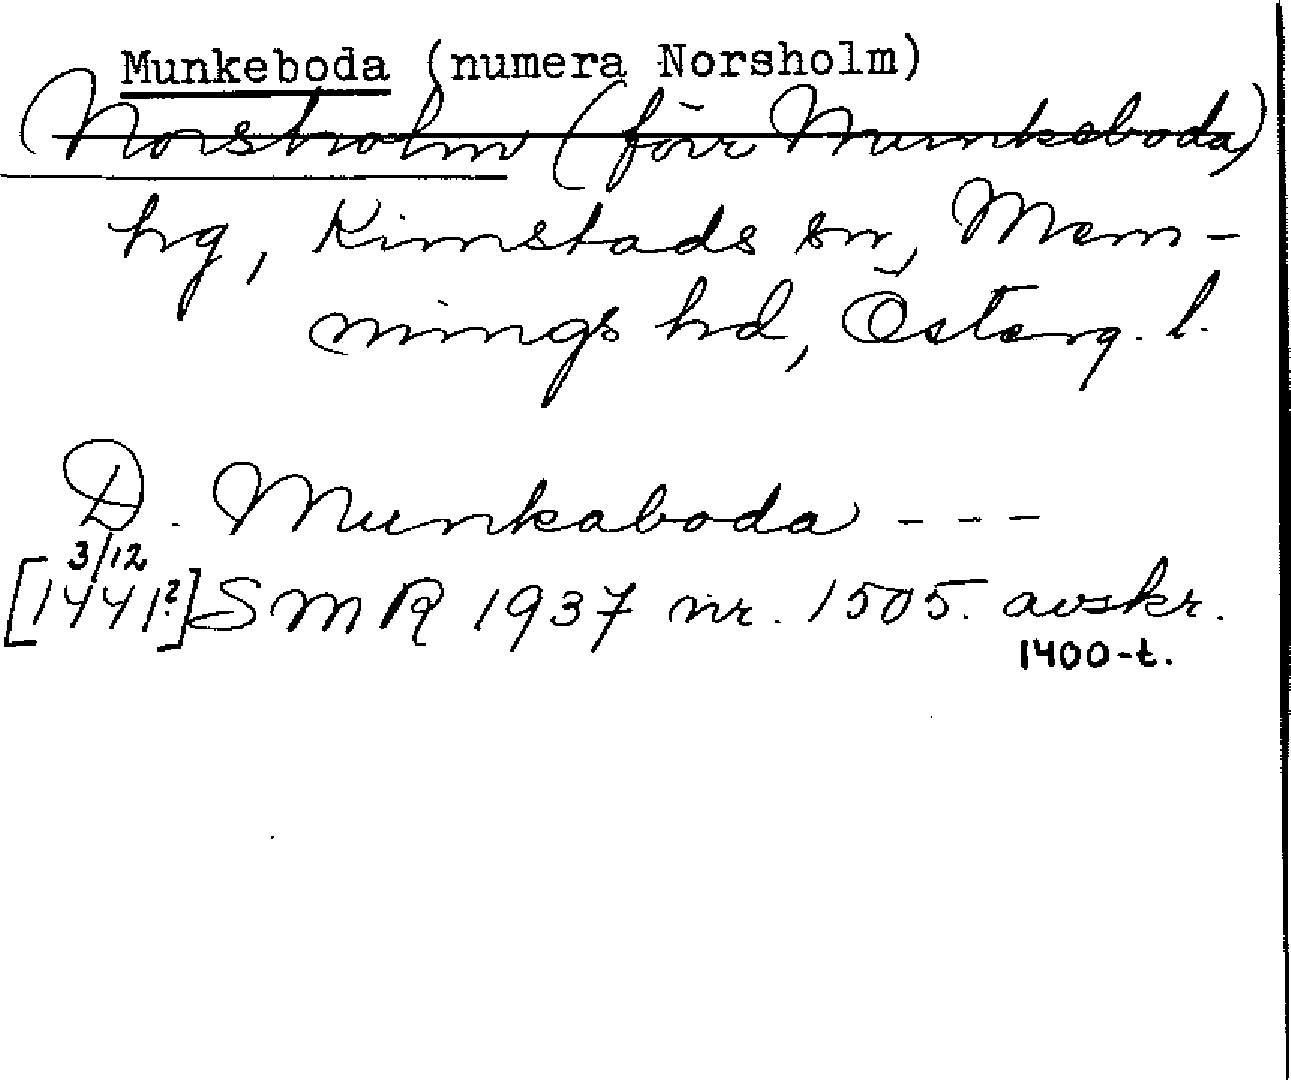 Munkeboda (numera Norsholm)
(Norsholm (förr Munkeboda)
hg, Kimstads sn, Mem-
mings hd, Österg. l.
D. Munkaboda - - -
3/12
[1441?] SMR 1937 nr. 1505. avskr.
1400-t.